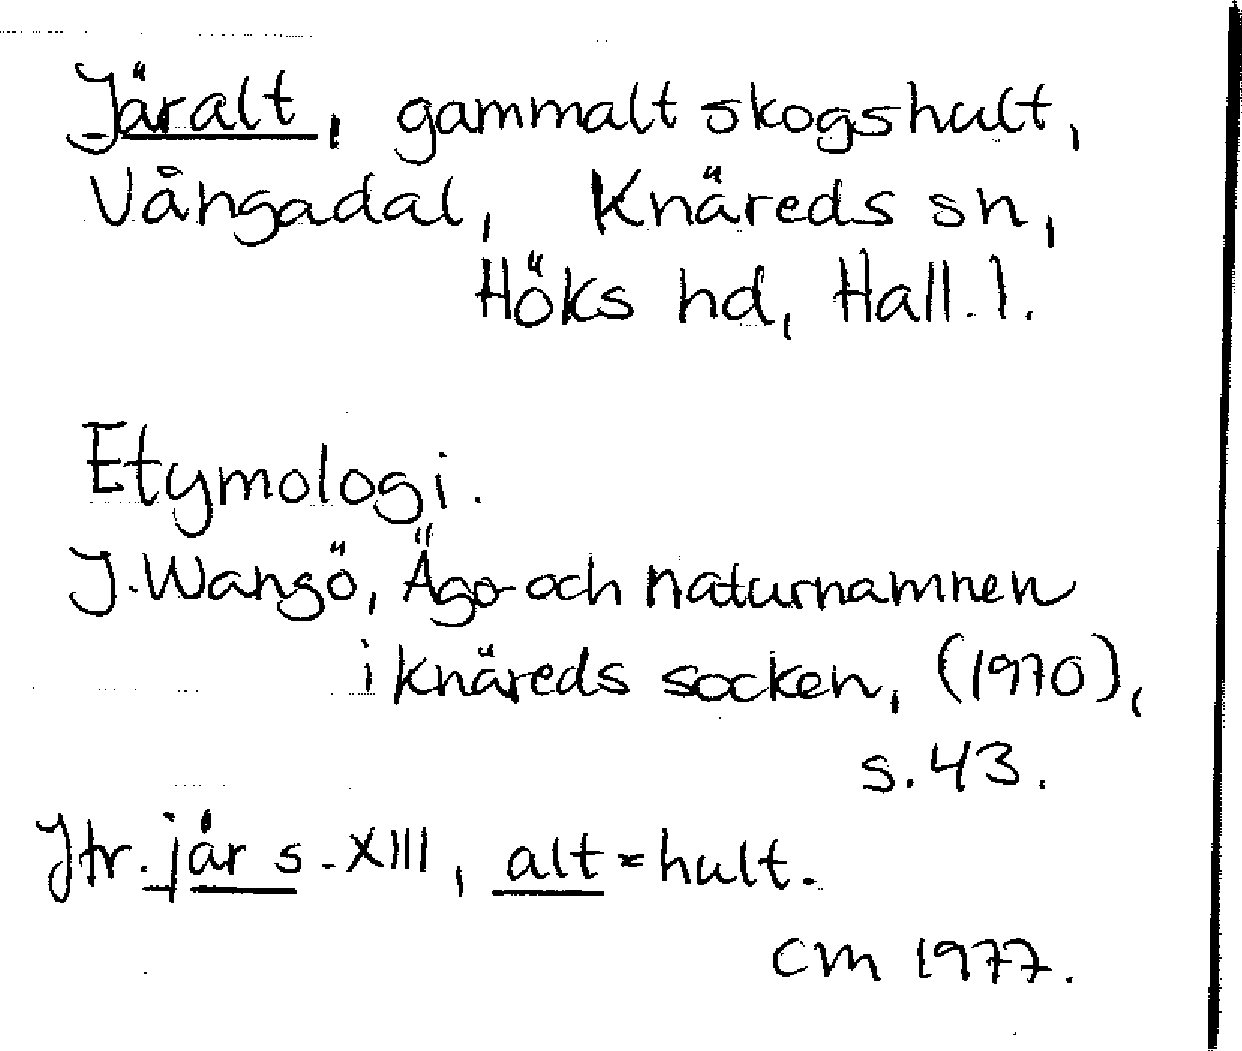 Järalt, gammalt skogshult,
Vångadal, Knäreds sn,
Höks hd, Hall. l.
Etymologi.
J. Wangö, Ägo- och naturnamnen
i Knäreds socken, (1970),
s. 43.
Jfr. jär s. XIII, alt = hult.
CM 1977.